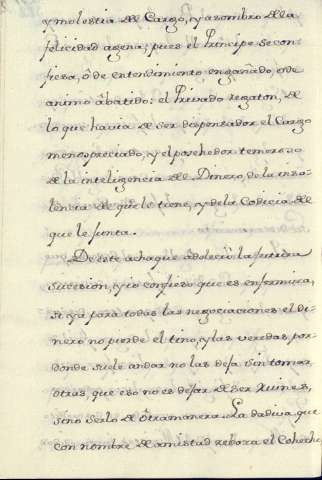 y molestia de el Cargo, y asombro de la
felicidad agena; pues el Principe se con
fiesa, ô de entendimiento engañado, ò de
animo âbatido: el Privado regaton, de
lo que havia de ser dispensador el Cargo
menospreciado, y el posehedor temeroso
de la inteligencia de el Dinero, de la inso-
lencia de que le tiene, y de la Codicia de
que le junta.
De este achaque adoleciò la futura
sucesion, y io confieso que es enfermiza,
si ya para todas las negociaciones el di-
nero no pierde el tino, y las veredas, por-
donde suele andar no las deja sin tomar
otras, que eso no es dejar de ser Ruines,
sino serlo de ôtra manera. La dadiva que
con nombre de amistad reboza el Cohecho